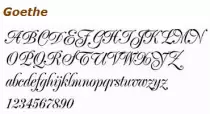 Goethe
ABCDEFGHIJKLMN
OPQRSTUVWXYZ
abcdefghijklmnopqrstuvwxyz
1234567890